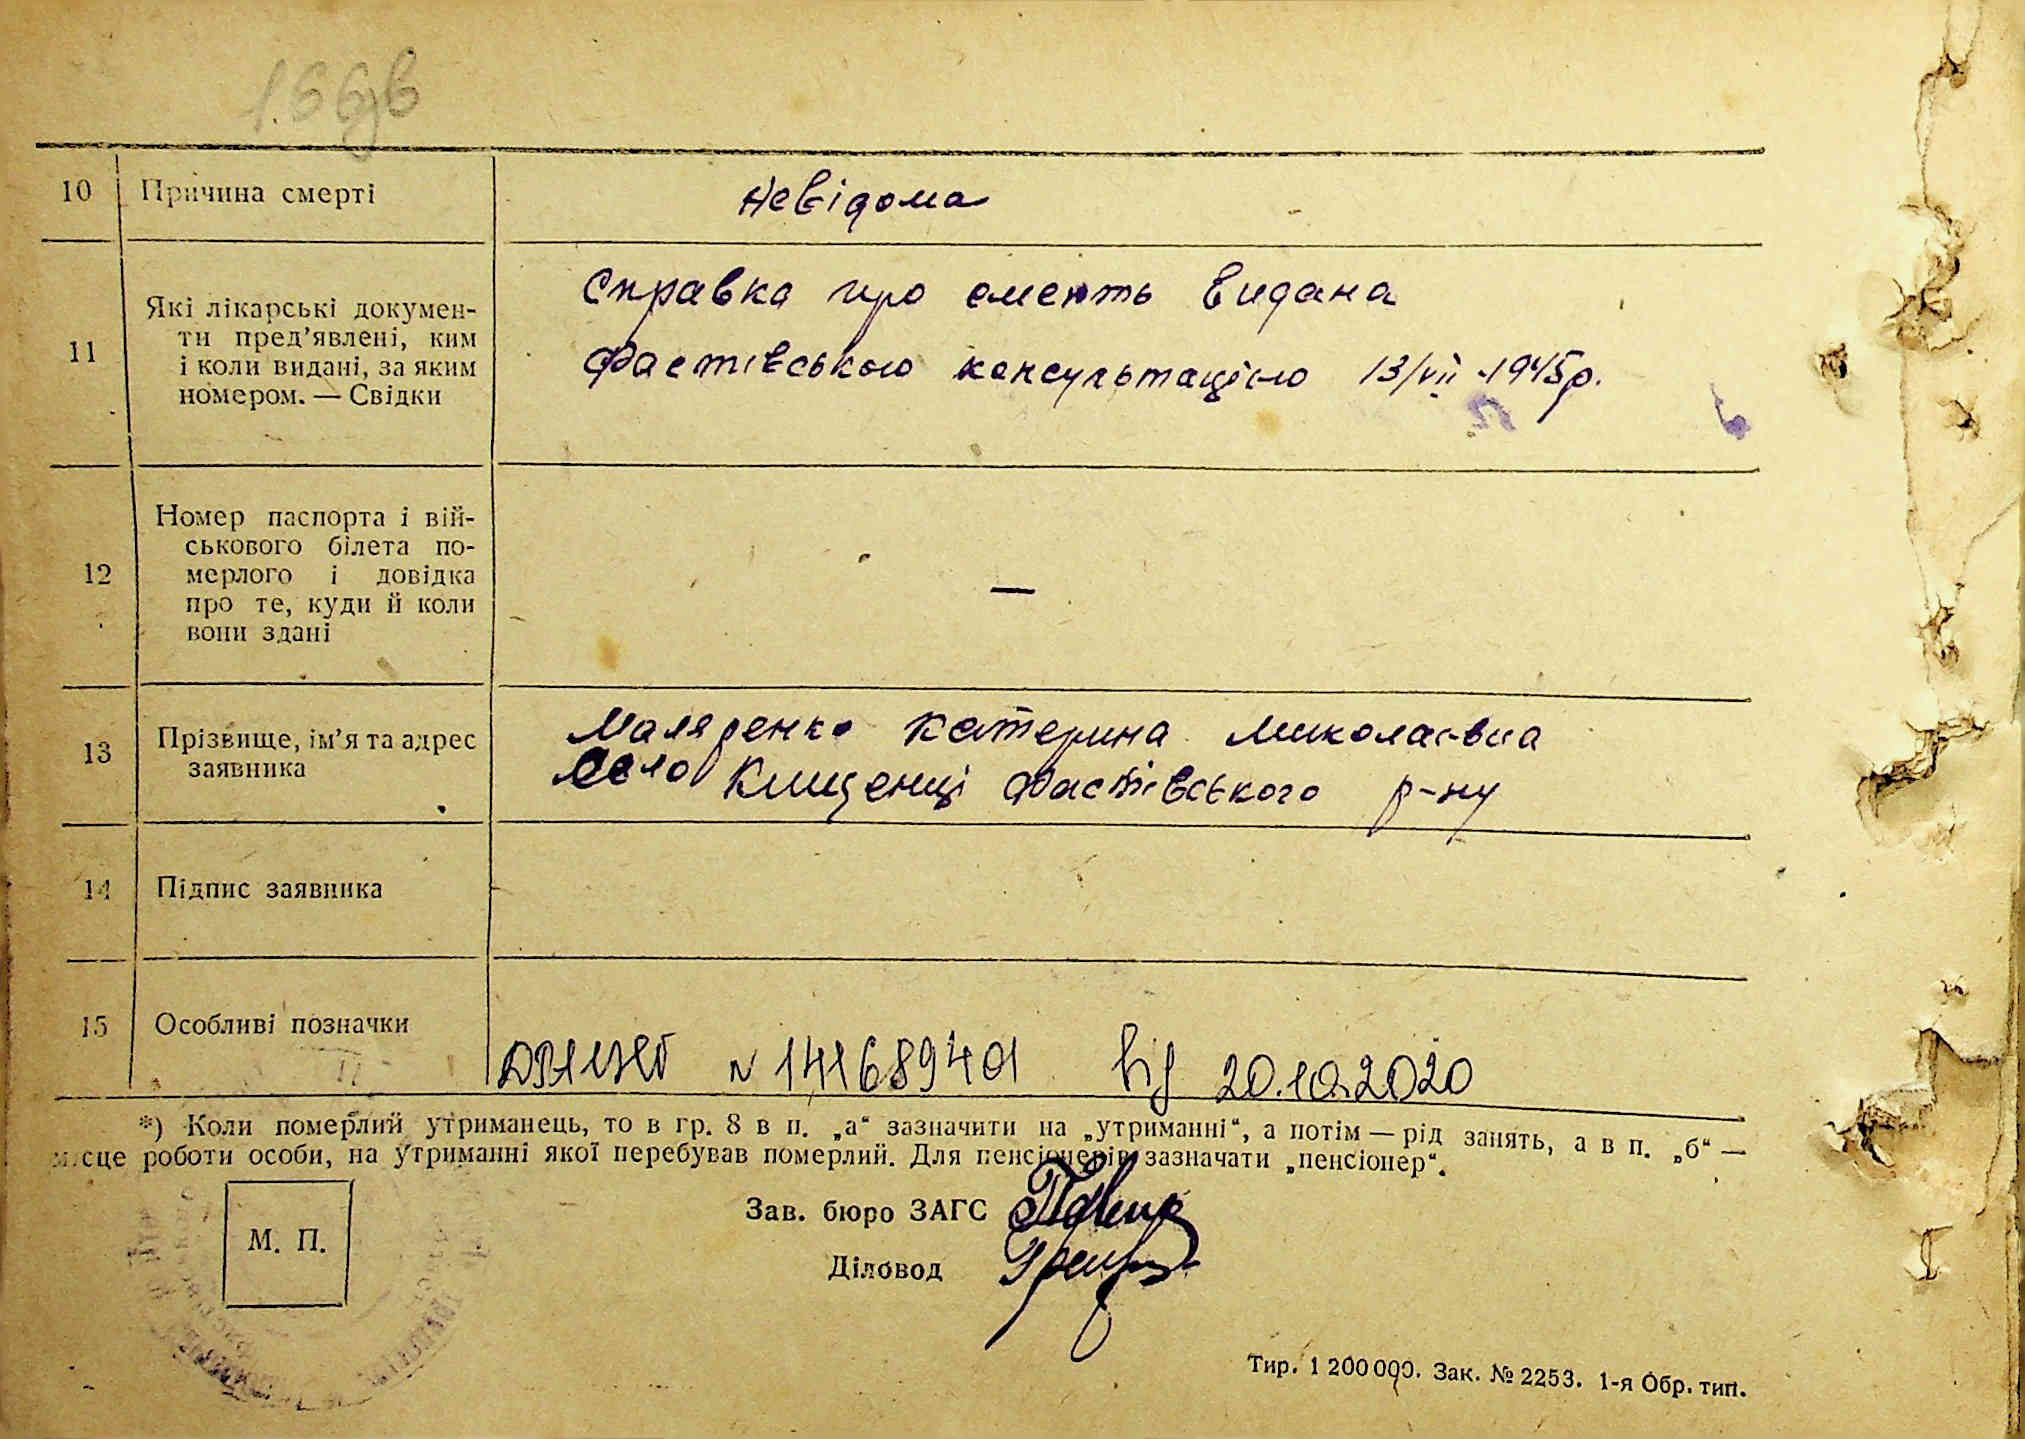 166в
10 Причина смерті
Невідома
11 Які лікарські докумен-
ти пред’явлені, ким
і коли видані, за яким
номером. — Свідки
Справка про смерть видана
Фастівською консультацією 13/VII-1945р.
12 Номер паспорта і вій-
ськового білета по-
мерлого і довідка
про те, куди й коли
вони здані
—
13 Прізвище, ім’я та адрес
заявника
Маляренко Катерина Миколаєвна
село Клищенці Фастівського р-ну
14 Підпис заявника
15 Особливі позначки
N 141689401 від 20.10.2020
*) Коли померлий утриманець, то в гр. 8 в п. „а“ зазначити на „утриманні“, а потім — рід занять, а в п. „б“ —
місце роботи особи, на утриманні якої перебував померлий. Для пенсіонерів зазначати „пенсіонер“.
М. П.
Зав. бюро ЗАГС
Діловод
Тир. 1 200 000. Зак. № 2253. 1-я Обр. тип.